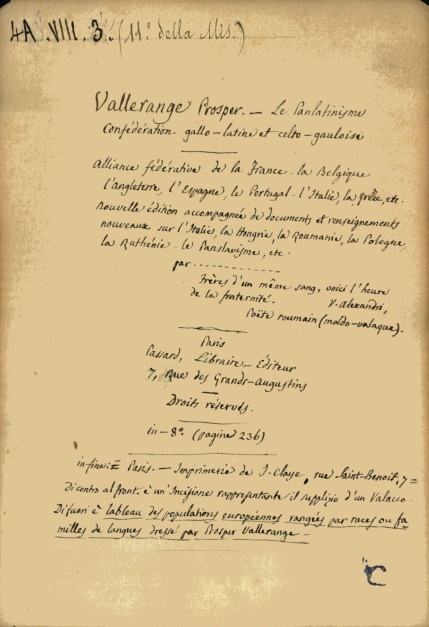 4A .VIII. 3. (11° della Mis.)
Vallerange Prosper. — Le Panlatinisme
Confédération gallo-latine et celto-gauloise
Alliance fédérative de la France - la Belgique
l'Angleterre, l'Espagne, le Portugal - l'Italie, la Grèce, etc.
Nouvelle édition accompagnée de documents et renseignements
nouveaux sur l'Italie, la Hongrie, la Roumanie, la Pologne
la Ruthénie - le Panslavisme, etc -
par - - - - - - - - - - - - -
Frères d'un même sang, voici l'heure
de la fraternité. V. Alexandri,
Poëte roumain (moldo-valaque).
Paris
Passard, Libraire - Editeur
7, Rue des Grands-Augustins
Droits réservés.
in-8° (pagine 236)
in fine: = Paris. — Imprimerie de J. Claye, rue Saint-Benoit, 7 =
Di contro al front. è un'Incisione rappresentante il supplizio d'un Valacco
Di fuori è tableau des populations européennes rangées par races ou fa-
milles de langues dressé par Prosper Vallerange -
C